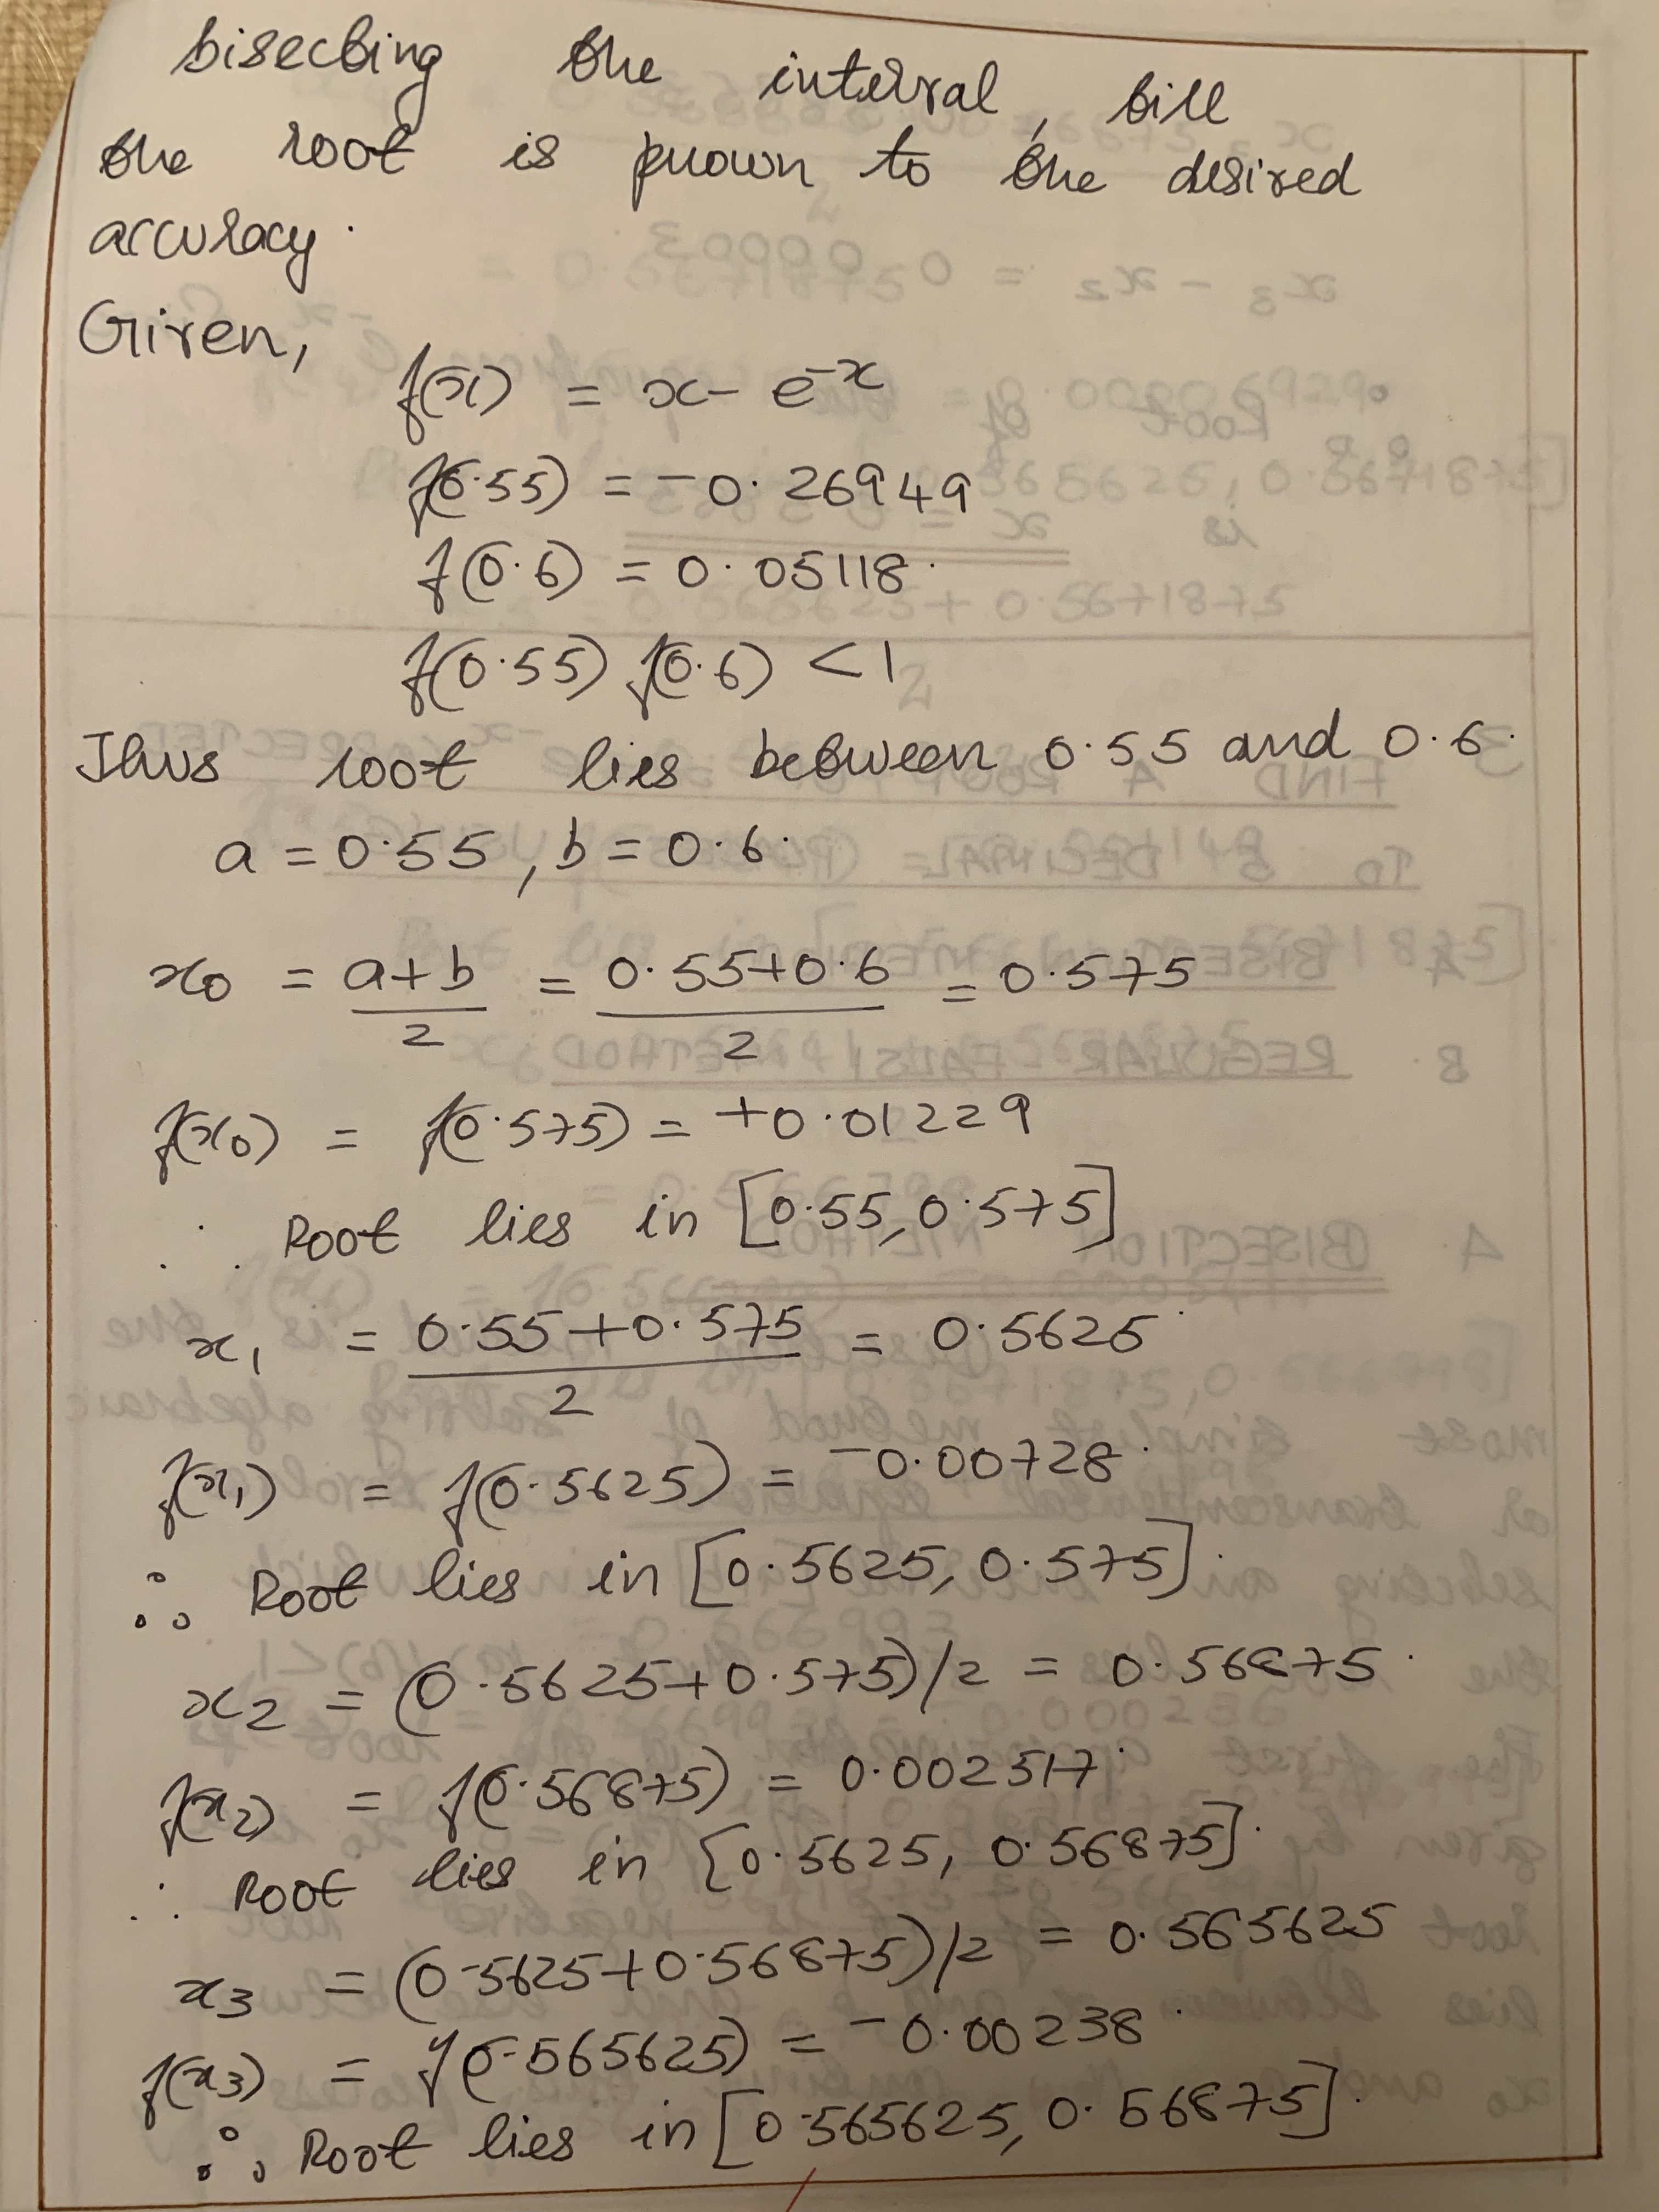 bisecting the interval, till
the root is known to the desired
accuracy.
Given,
f(x) = x - e^-x
f(0.55) = -0.26949
f(0.6) = 0.05118.
f(0.55) f(0.6) < 1
Thus root lies between 0.55 and 0.6.
a = 0.55, b = 0.6.
x0 = a+b/2 = 0.55+0.6/2 = 0.575
f(x0) = f(0.575) = +0.01229
∴ Root lies in [0.55, 0.575]
x1 = 0.55+0.575/2 = 0.5625.
f(x1) = f(0.5625) = -0.00728.
∴ Root lies in [0.5625, 0.575].
x2 = (0.5625+0.575)/2 = 0.56875.
f(x2) = f(0.56875) = 0.002517.
∴ Root lies in [0.5625, 0.56875].
x3 = (0.5625+0.56875)/2 = 0.565625
f(x3) = f(0.565625) = -0.00238.
∴ Root lies in [0.565625, 0.56875].